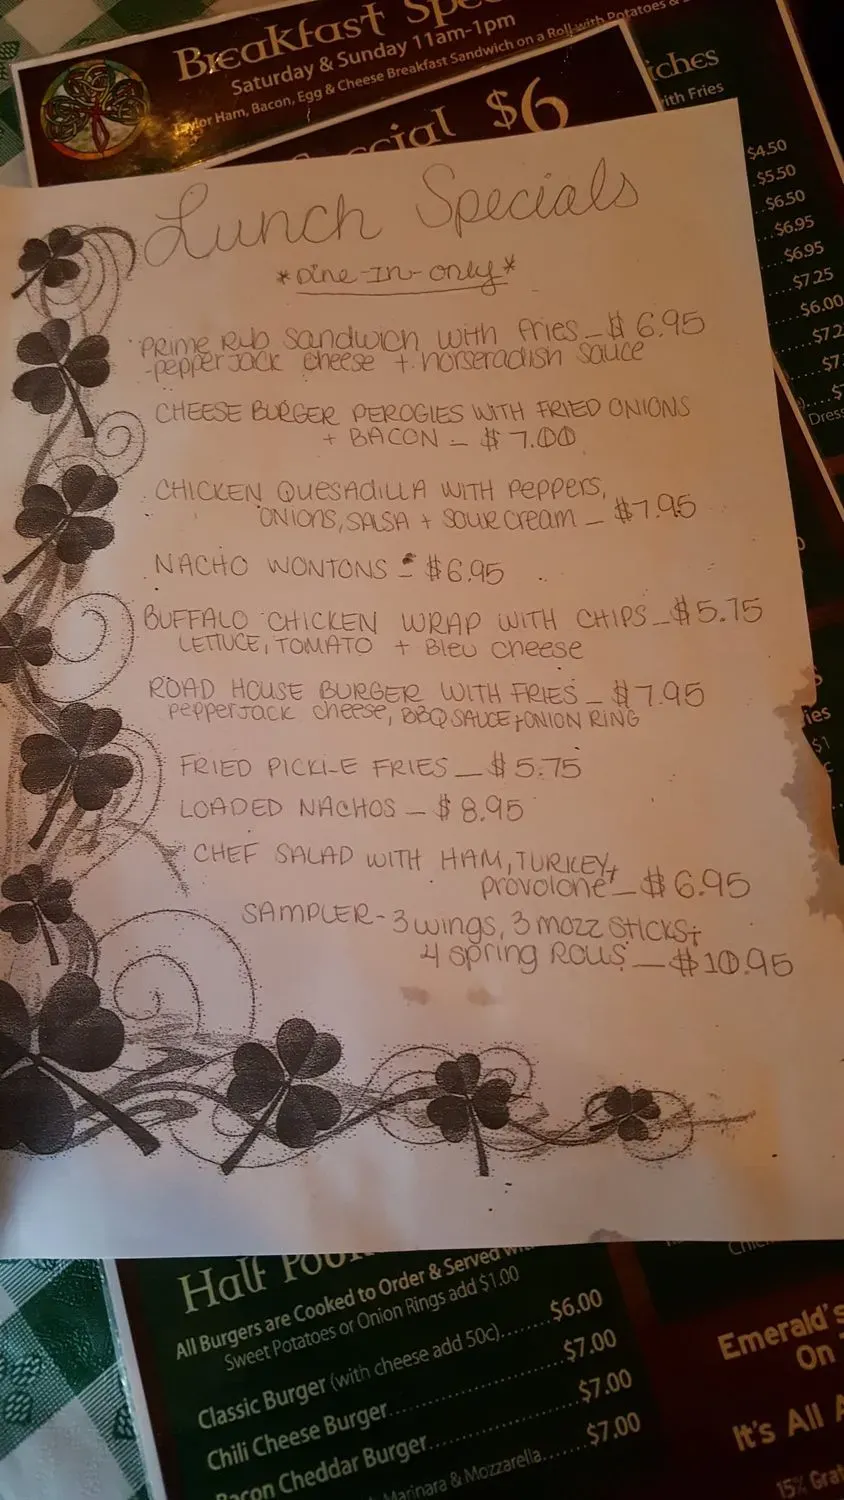 Breakfast Spe
Saturday & Sunday 11am-1pm
Taylor Ham, Bacon, Egg & Cheese Breakfast Sandwich on a Roll with Potatoes &
ecial $6
iches
with Fries
$4.50
$5.50
$6.50
$6.95
$6.95
$7.25
$6.00
Lunch Specials
*Dine-In-Only*
PRIME RIB SANDWICH WITH FRIES - $6.95
-PEPPERJACK CHEESE + HORSERADISH SAUCE
CHEESE BURGER PEROGIES WITH FRIED ONIONS
+ BACON - $7.00
CHICKEN QUESADILLA WITH PEPPERS,
ONIONS, SALSA + SOUR CREAM - $7.95
NACHO WONTONS - $6.95
BUFFALO CHICKEN WRAP WITH CHIPS - $5.75
LETTUCE, TOMATO + Bleu cheese
ROAD HOUSE BURGER WITH FRIES - $7.95
PEPPERJACK CHEESE, BBQ SAUCE + ONION RING
FRIED PICKLE FRIES - $5.75
LOADED NACHOS - $8.95
CHEF SALAD WITH HAM, TURKEY +
PROVOLONE - $6.95
SAMPLER - 3 WINGS, 3 MOZZ STICKS +
4 SPRING ROLLS - $10.95
Half Pou
All Burgers are Cooked to Order & Served
Sweet Potatoes or Onion Rings add $1.00
Classic Burger (with cheese add 50c)........$6.00
Chili Cheese Burger........$7.00
Bacon Cheddar Burger........$7.00
Marinara & Mozzarella........$7.00
Emerald's
On
It's All
15% Grat